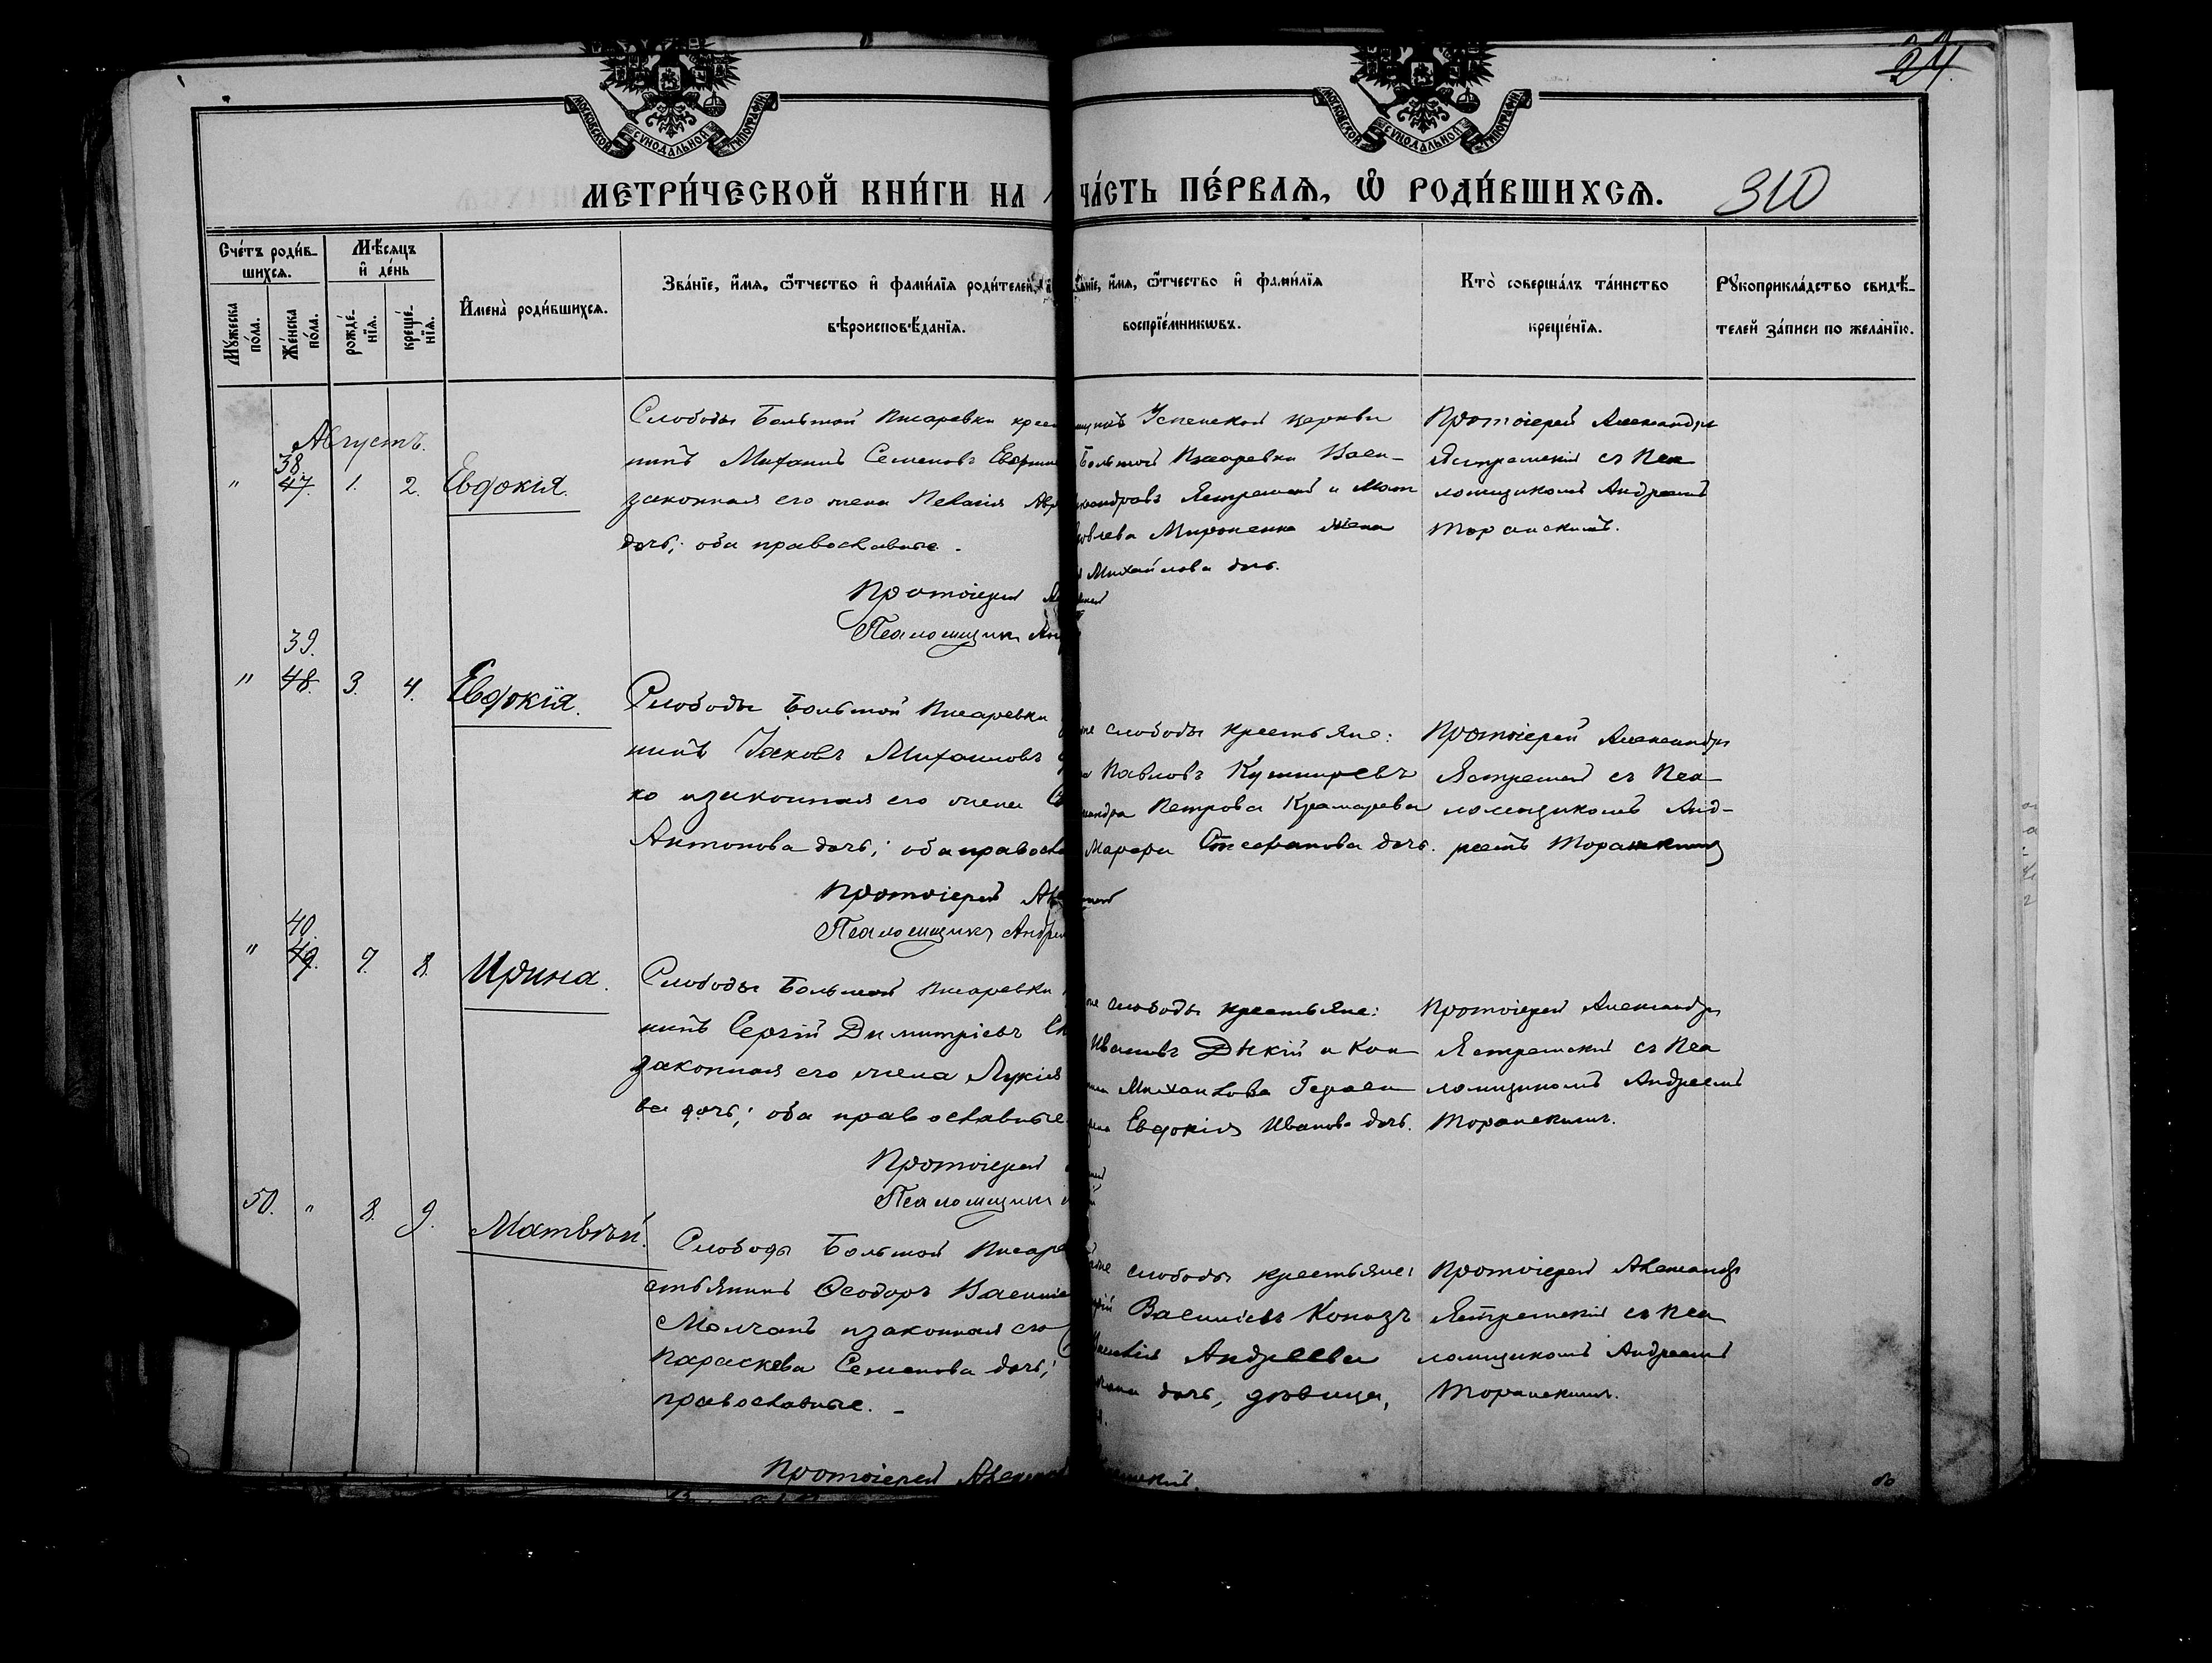 МОСКОВСКОЙ СѴНОДАЛЬНОЙ ТИПОГРАФІИ
МОСКОВСКОЙ СѴНОДАЛЬНОЙ ТИПОГРАФІИ
24.
МЕТРИ́ЧЕСКОЙ КНИ́ГИ НА
ЧА́СТЬ ПЕ́РВАѦ, Ѽ РОДИ́ВШИХСѦ.
310
Сче́тъ роди́в-
шихсѧ.
Мꙋ́жеска по́ла.
Же́нска по́ла.
Мѣ́сяцъ
и҆ де́нь
рожде́-нїѧ.
креще́-нїѧ.
И҆мена̀ роди́вшихсѧ.
Зва́нїе, и҆́мѧ, ѻ҆́тчество и҆ фами́лїѧ роди́телей,
вѣроисповѣ́данїѧ.
и҆́мѧ, ѻ҆́тчество и҆ фами́лїѧ
воспрїе́мникѡвъ.
Кто̀ соверша́лъ та́инство
креще́нїѧ.
Рꙋкоприкла́дство свидѣ́-
телей за́писи по жела́нїю.
Августъ.
38.
" 47. 1. 2. Евдокія.
Слободы Большой Писаревки
нинъ Михаилъ Семеновъ
законная его жена Пелагія
дочь; оба православные.
Протоіерей
Псаломщикъ
Успенской церкви
Большой Писаревки Васи-
Ястремскій и Мат
Мироненка жена
Михайлова дочь.
Протоіерей Александръ
Ястремскій съ Пса
ломщикомъ Андреемъ
Торанскимъ.
39.
" 48. 3. 4. Евдокія.
Слободы Большой Писаревки
нинъ Іаковъ Михаиловъ
ко и законная его жена
Антонова дочь; оба правосла
Протоіерей
Псаломщикъ Андрей
слободы крестьяне:
Павловъ Кушниревъ
Петрова Крамарева
Марфа Стефанова дочь.
Протоіерей Александръ
Ястремскій съ Пса
ломщикомъ Анд-
реемъ Торанскимъ
40.
" 49. 7. 8. Ирина.
Слободы Большой Писаревки
нинъ Сергій Димитріевъ
законная его жена Лукія
ва дочь; оба православные
Протоіерей
Псаломщикъ
слободы крестьяне:
Ивановъ Дикій и Кон
Михайлова Гераси
Евдокія Иванова дочь.
Протоіерей Александръ
Ястремскій съ Пса
ломщикомъ Андреемъ
Торанскимъ.
50. " 8. 9. Матвѣй.
Слободы Большой Писаре
стьянинъ Ѳеодоръ Василіе
Молчанъ и законная его
Параскева Семенова дочь;
православные. -
Протоіерей
слободы крестьяне:
Василіевъ Коназъ
Андреева
дочь, дѣвица,
Протоіерей Александръ
Ястремскій съ Пса
ломщикомъ Андреемъ
Торанскимъ.